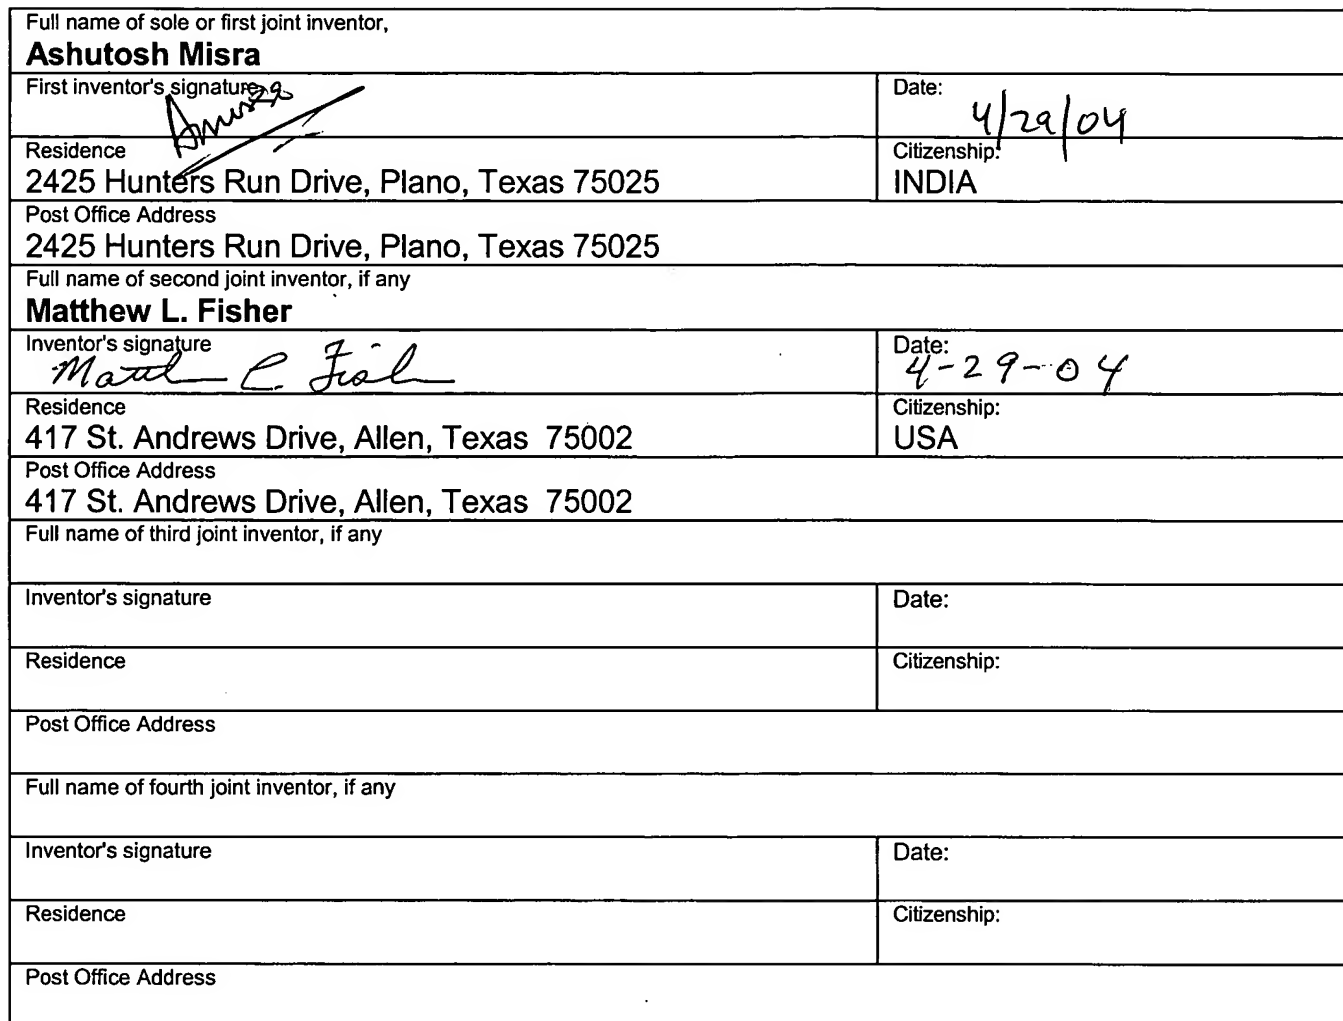 Full name of sole or first joint inventor,
Ashutosh Misra
First inventor's signature
Date:
4/29/04
Residence
2425 Hunters Run Drive, Plano, Texas 75025
Citizenship:
INDIA
Post Office Address
2425 Hunters Run Drive, Plano, Texas 75025
Full name of second joint inventor, if any
Matthew L. Fisher
Inventor's signature
Date:
4-29-04
Residence
417 St. Andrews Drive, Allen, Texas 75002
Citizenship:
USA
Post Office Address
417 St. Andrews Drive, Allen, Texas 75002
Full name of third joint inventor, if any
Inventor's signature
Date:
Residence
Citizenship:
Post Office Address
Full name of fourth joint inventor, if any
Inventor's signature
Date:
Residence
Citizenship:
Post Office Address